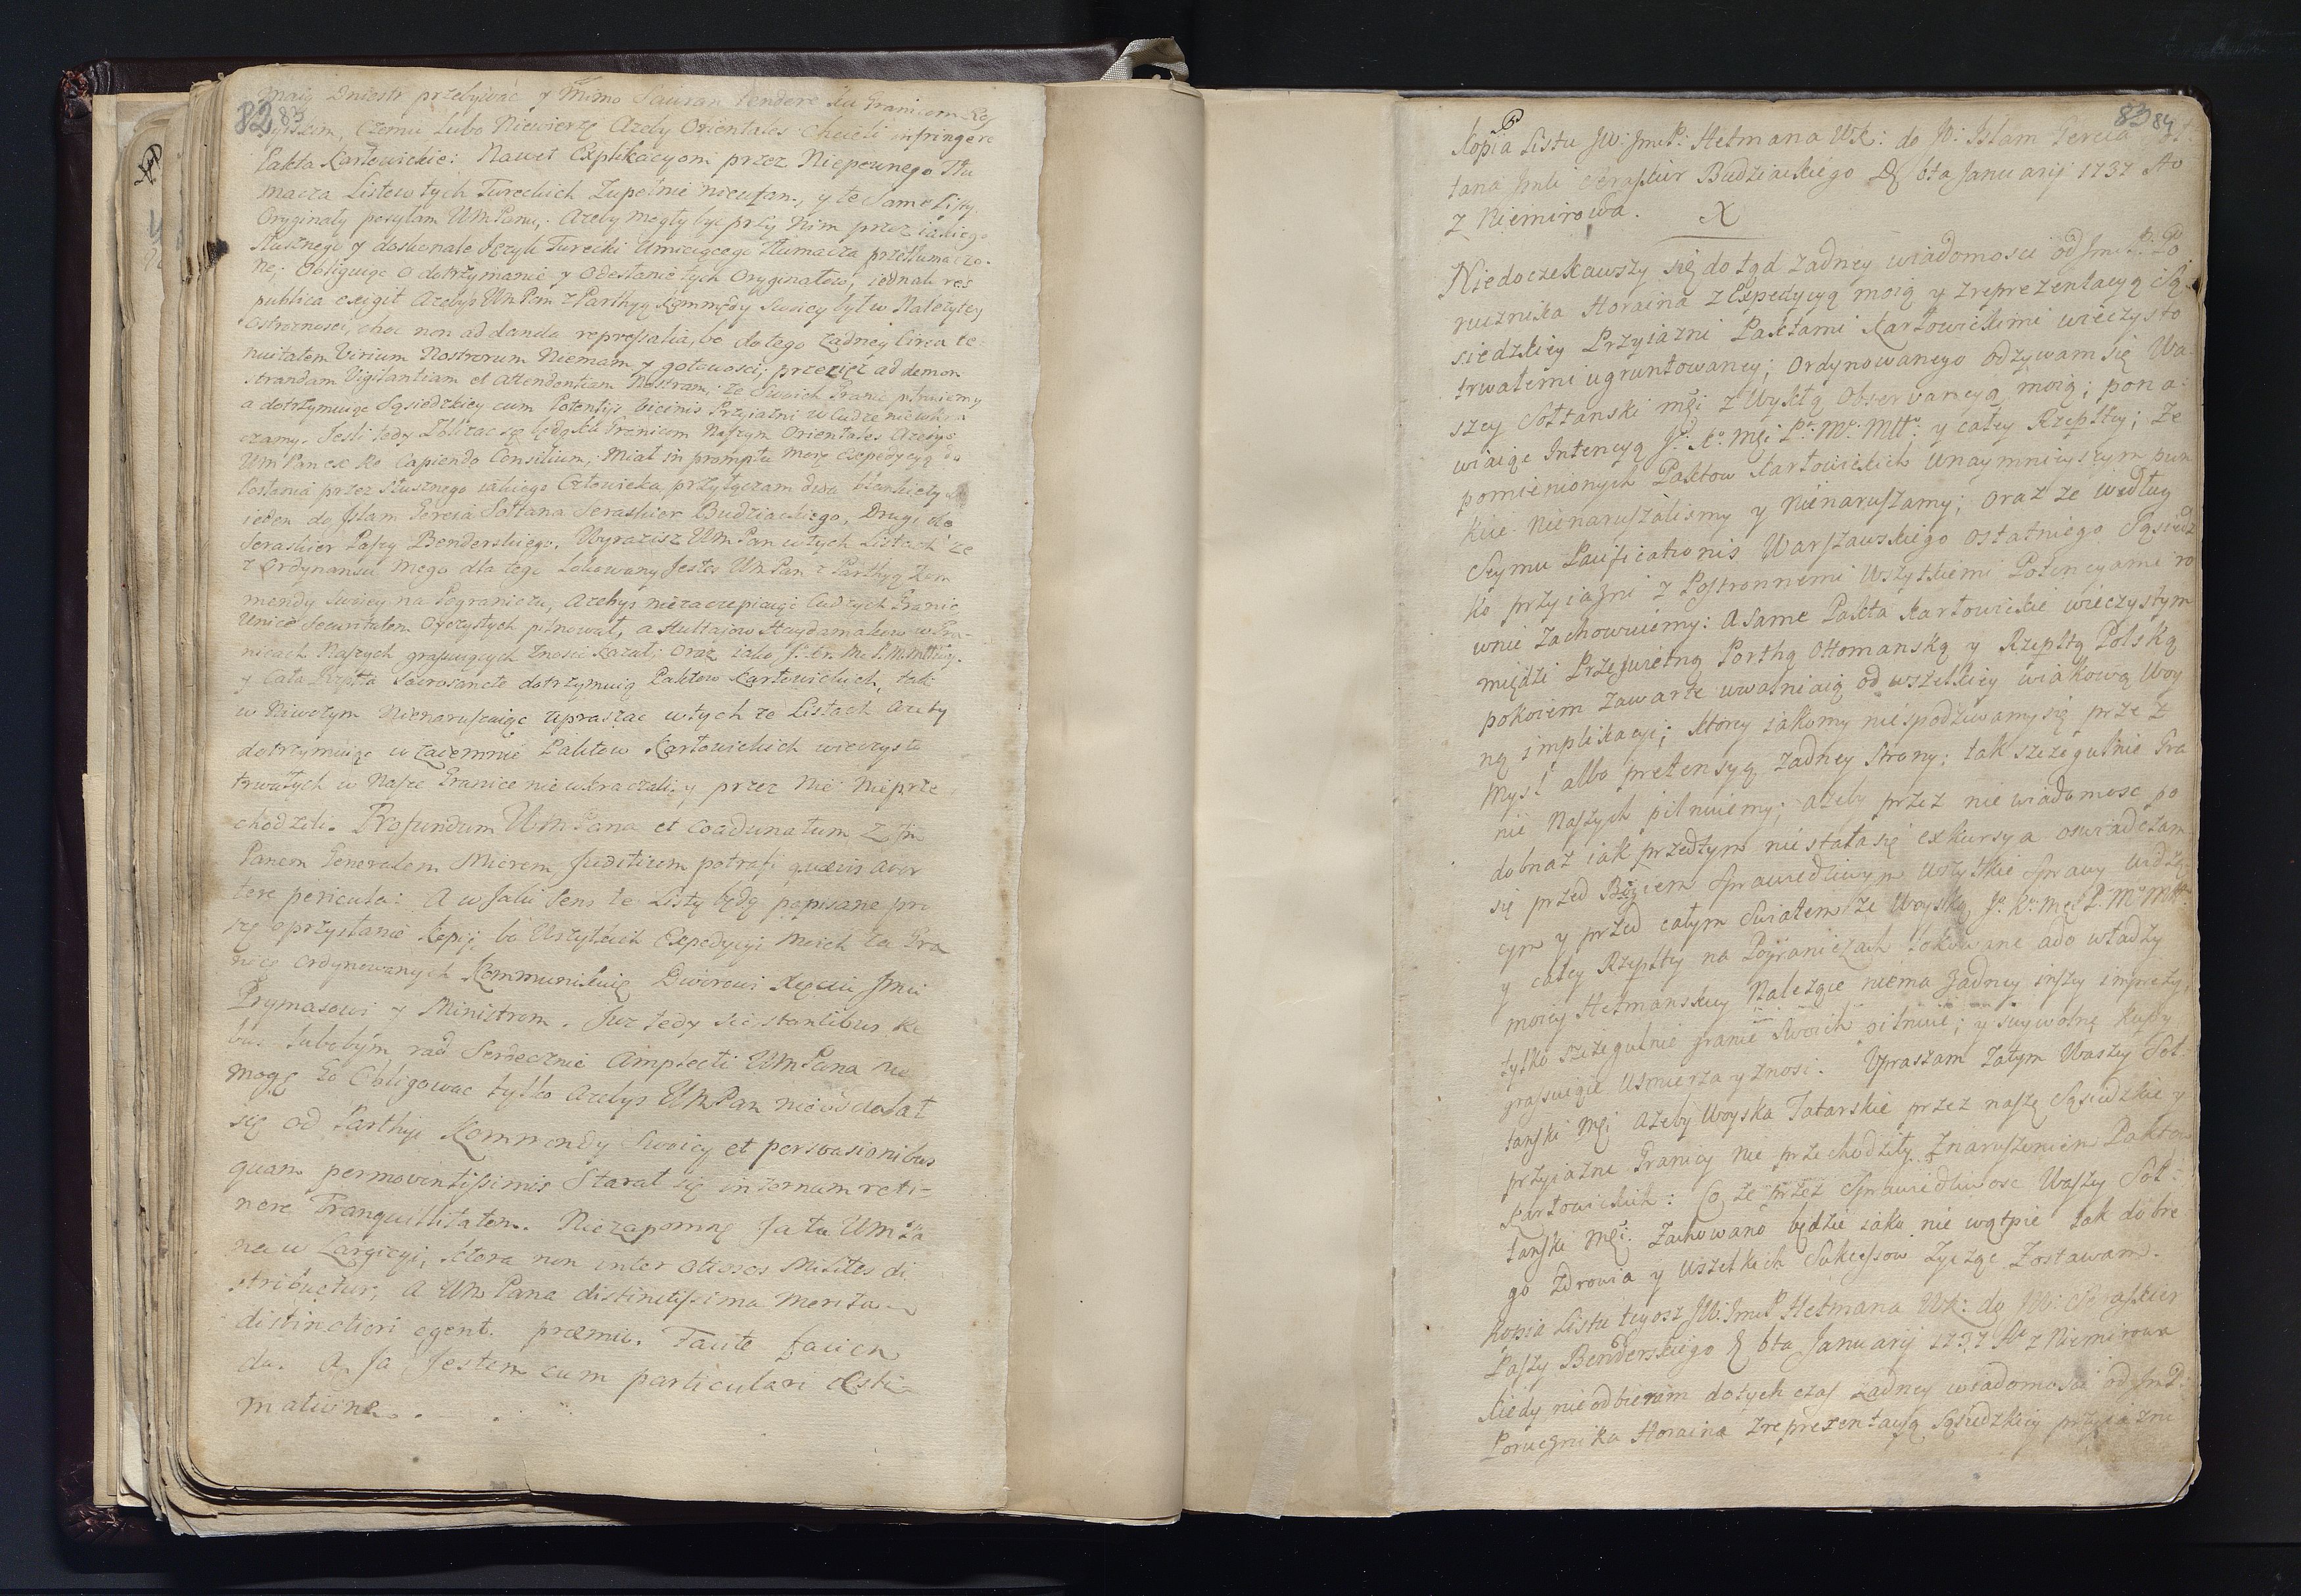 82 83
maią Dniestr przebywac y Mimo Sawran tendere ku Granicom
czemu lubo Niewierzę Azeby Orientales chcieli infringere
Pakta Karłowickie: Nawet Explikacyom przez Niepewnego Tłu
macza Listow tych Tureckich Zupełnie nieufam, y te Same Listy
Oryginały posyłam WmPanu, Azeby mogły byc przy Nim przez iakiego
słusznego y doskonale Języк Turecki Umieiącego Tłumacza przetłumaczo-
ne, Obliguię o dotrzymanie y Odesłanie tych Oryginałow, iednak res
publica exigit Azebys WmPan z Parthyą Kommędy Swoiey był w Nalezytey
Ostroznosci, choc non ad danda repressalia, bo do tego Zadney Circa te
nuitatem Virium Nostrorum Niemam y gotowosci; przeciez ad demon
strandam Vigilantiam et Attendentiam Nostram, ze Swoich Granic pilnuiemy
a dotrzymuiąc Sąsiedzkiey cum Potentijs vicinis Przyiazni w Cudze niewkra
czamy. Jesli tedy Zblizac się będą ku Granicom Naszym Orientales Azebys
WmPan ex Re Capiendo Consilium, Miał in promptu moię Expedycyą do
Posłania przez słusznego iakiego Człowieka, przyłączam dwa blankiety
ieden do Islam Gereia Sołtana Seraskier Budziackiego, Drugi do
Seraskier Paszy Benderskiego. Wyrazisz WmPan w tych Listach ze
z Ordynansu mego dla tego Lokowany Jestes WmPan z Parthyą Kom
mendy Swoiey na Pograniczu, Azebys niezaczepiaiąc Cudzych Granic
Unice Securitatem Oyczystych pilnował, a Hultaiow Haydamakow w Gra-
nicach Naszych grasuiących Znosic kazał; Oraz iako J. Kr. Mc P. N. Mttwy.
y Cała Rzptta Sacrosancte dotrzymuią Paktow Karłowickich, tak
w Niwczym Nienaruszaiąc upraszac w tych ze Listach Azeby
dotrzymuiąc wzaiemnie Paktow Karłowickich wieczysto
trwałych w Nasze Granice niewkraczali y przez Nie Nieprze
chodzili. Profundum WmPana et Coadunatum Z Jm
Panem Generałem Mierem Judicium potrafi quævis aver
tere pericula: A w Jaki Sens te Listy będą popisane pro
szę o przysłanie kopij, bo Wszytkich Expedycyi moich za Gra
nicę ordynowanych Kommunikuię Dworowi Xięciu Jmci
Prymasowi y Ministrom. Juz tedy sic stantibus Re
bus lubobym rad Serdecznie Amplecti WmPana nie
mogę Go Obligowac tylko Azebys WmPan nieoddalał
się od Parthyi Kommendy Swoiey et persuasionibus
quam permoventissimis Starał się internam reti-
nere Tranquillitatem. Niezapomnę Ja tu WmPa
na w Largicyi, ktora non inter Otiosos Milites di
stribuetur; A WmPana distinctissima Merita
distinctiori egent. præmio. Tacite facien
da. A Ja Jestem cum particulari Æsti-
matione.

83 84
Kopia Listu JW: JmcP: Hetmana WK: do W: Islam Gereia Soł:
tana Jmci Seraskier Budziackiego D 6ta Januarij 1737 Ao
z Niemirowa.
Niedoczekawszy się do tąd zadney wiadomosci od JmcP: Po
rucznika Horaina z Expedycyą moią y zreprezentacyą Są
siedzkiey Przyiazni Paktami Karłowickimi wieczysto
trwałemi ugruntowaney; Ordynowanego odzywam się Wa
szey Sołtanski mći z Wszełką Obserwancyą moią; pona-
wiaiąc Intencyą J. K. Mći P. M. Mtt: y całey Rzeptey; Ze
pomienionych Paktow Karłowickich w naymnieyszym pun
kcie nienaruszalismy y nienaruszamy; Oraz ze według
Seymu Pacificationis Warszawskiego ostatniego Sąsiedz
ko przyiazni z Postronnemi Wszytkiemi Potencyami ro
wnie Zachowuiemy: A Same Pakta Karłowickie wieczystym
między Prześwietną Porthą Ottomanską y Rzepltą Polską
pokoiem zawarte uwalniaią od wszelkiey w iakową Woy
nę implikacyi; ktorey iakomy niespodziwamy się prze z
Mysl albo pretensyą zadney Strony; tak szczegulnie Gra
nic Naszych pilnuiemy; azeby przez niewiadomosc po
dobnaz iak przedtym niestała się exkursya oswiadczam
się przed Bogiem Sprawiedliwym wszytkie Sprawy widzą-
cym y przed całym Swiatem ze Woyska J. K. Mći P. M. Mtt:
y całey Rzeptey na Pograniczach lokowane a do władzy
moiey Hetmanskiey Nalezące niema zadney inszey imprezy,
tylko szczegulnie granic Swoich pilnuie; y swywolną kupy
grassuiące Usmierza y znosi. Upraszam Zatym Waszey Soł-
tanski Mći azeby Woyska Tatarskie przez naszę Sąsiedzkie y
przyiazne Granicy nie przechodziły z naruszeniem Paktow
Karłowickich: Co ze przez Sprawiedliwosc Waszey Soł:
tanski Mći. Zachowano będzie iako nie wątpie tak dobre
go Zdrowia y wszelkich Sukcessow zycząc Zostawam.
Kopia Listu tegosz JW: JmcP Hetmana WK: do JW: Seraskier
Paszy Benderskiego D 6ta Januarij 1737 Ao z Niemirowa
Kiedy nieodbieram dotych czas zadney wiadomosci od JmP:
Porucznika Horaina zreprezentacyą Sąsiedzkiey przyiazni